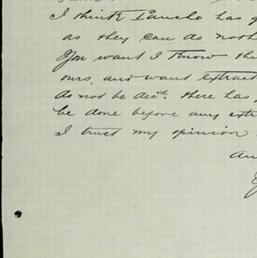 I think Pancho has g
as they can do noth
You want I know the
mrs. and want extract
do not be dis. there has
be done before any extr
I trust my opinion